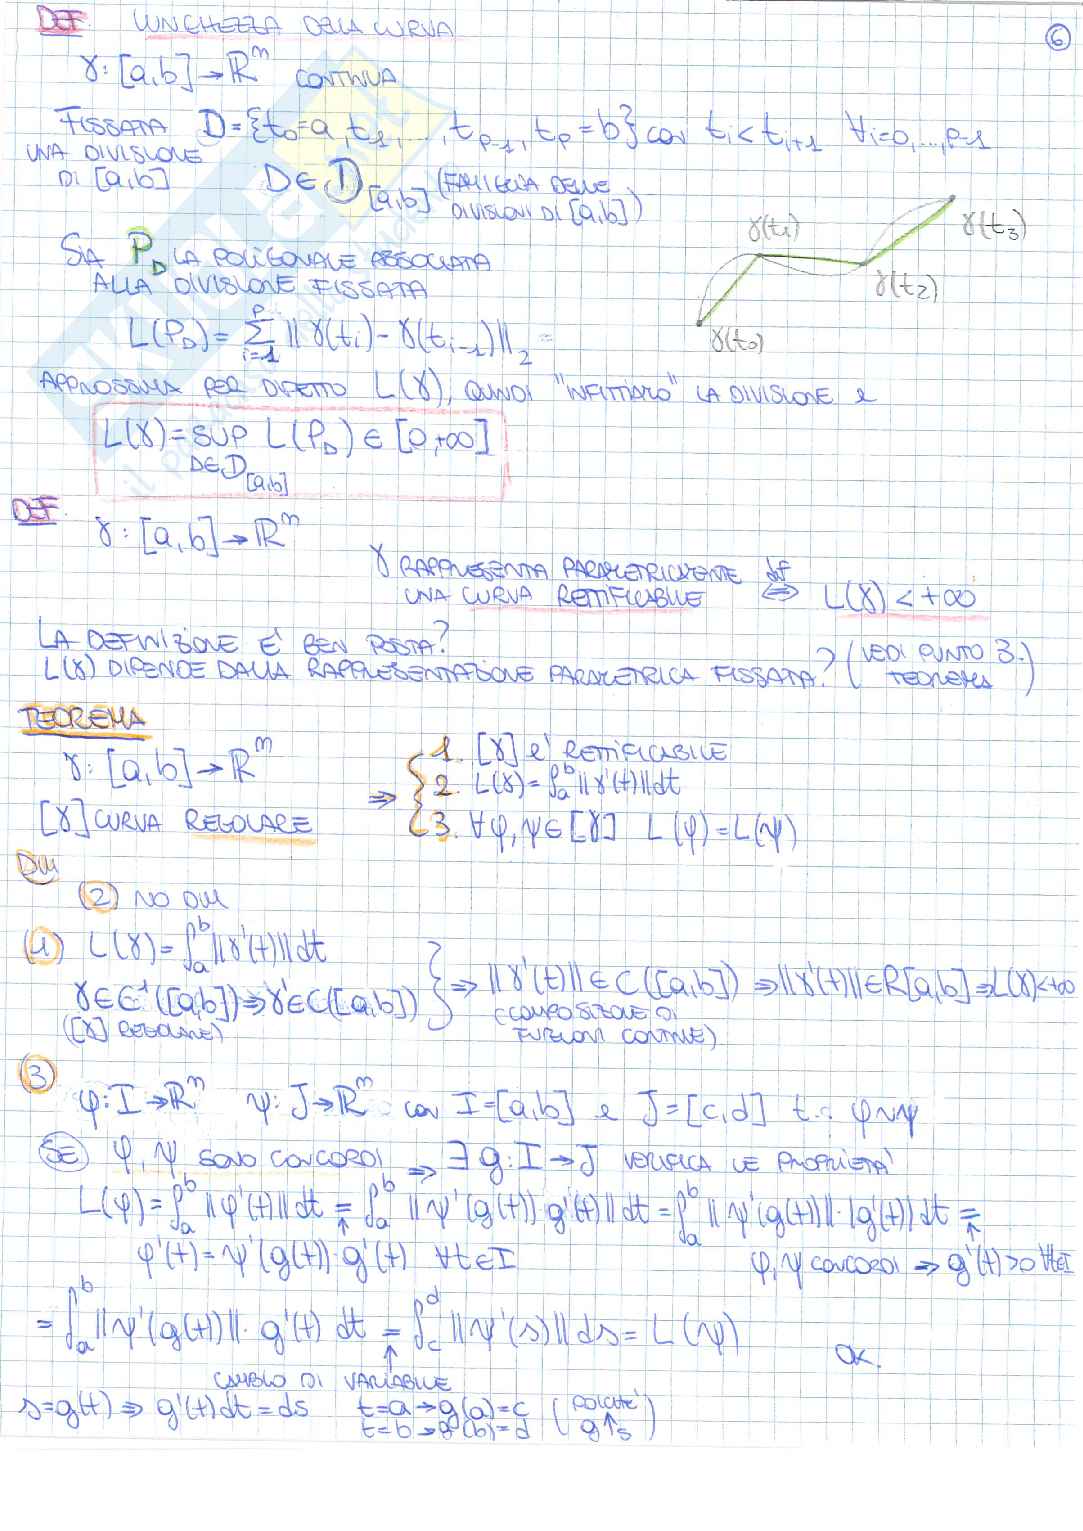 DEF. LUNGHEZZA DELLA CURVA
6
γ: [a,b] → ℝ^m CONTINUA
FISSATA D = {t₀=a, t₁, ..., t_{p-1}, t_p = b} con t_i < t_{i+1} ∀i=0,...,p-1
UNA DIVISIONE
DI [a,b] D ∈ 𝒟_{[a,b]} (FAMIGLIA DELLE
DIVISIONI DI [a,b])
SIA P_D LA POLIGONALE ASSOCIATA
ALLA DIVISIONE FISSATA
γ(t₀)
γ(t₁)
γ(t₂)
γ(t₃)
L(P_D) = Σ_{i=1}^{p} ||γ(t_i) - γ(t_{i-1})||₂
APPROSSIMA PER DIFETTO L(γ), QUINDI "INFITTIAMO" LA DIVISIONE e
L(γ) = SUP L(P_D) ∈ [0,+∞]
D∈𝒟_{[a,b]}
DEF. γ: [a,b] → ℝ^m
γ RAPPRESENTA PARAMETRICAMENTE
UNA CURVA RETTIFICABILE ⇔^{def} L(γ) < +∞
LA DEFINIZIONE E' BEN POSTA?
L(γ) DIPENDE DALLA RAPPRESENTAZIONE PARAMETRICA FISSATA? (VEDI PUNTO 3.
TEOREMA)
TEOREMA
γ: [a,b] → ℝ^m
[γ] CURVA REGOLARE ⇒
1. [γ] e' RETTIFICABILE
2. L(γ) = ∫_a^b ||γ'(t)|| dt
3. ∀φ,ψ ∈ [γ] L(φ) = L(ψ)
DIM
(2) NO DIM
(1) L(γ) = ∫_a^b ||γ'(t)|| dt
γ ∈ C¹([a,b]) ⇒ γ' ∈ C([a,b])
([γ] REGOLARE)
⇒ ||γ'(t)|| ∈ C([a,b]) ⇒ ||γ'(t)|| ∈ R[a,b] ⇒ L(γ) < +∞
(COMPOSIZIONE DI
FUNZIONI CONTINUE)
(3)
φ: I → ℝ^m ψ: J → ℝ^m con I = [a,b] e J = [c,d] t.c. φ ~ ψ
SE φ, ψ SONO CONCORDI ⇒ ∃ g: I → J VERIFICA LE PROPRIETA'
L(φ) = ∫_a^b ||φ'(t)|| dt = ∫_a^b ||ψ'(g(t)) g'(t)|| dt = ∫_a^b ||ψ'(g(t))|| · |g'(t)| dt =
φ'(t) = ψ'(g(t)) · g'(t) ∀t ∈ I
φ, ψ CONCORDI ⇒ g'(t) > 0 ∀t∈I
= ∫_a^b ||ψ'(g(t))|| · g'(t) dt = ∫_c^d ||ψ'(s)|| ds = L(ψ)
OK.
CAMBIO DI VARIABILE
s = g(t) ⇒ g'(t) dt = ds t=a → g(a) = c (POICHE'
t=b → g(b) = d g↑s)